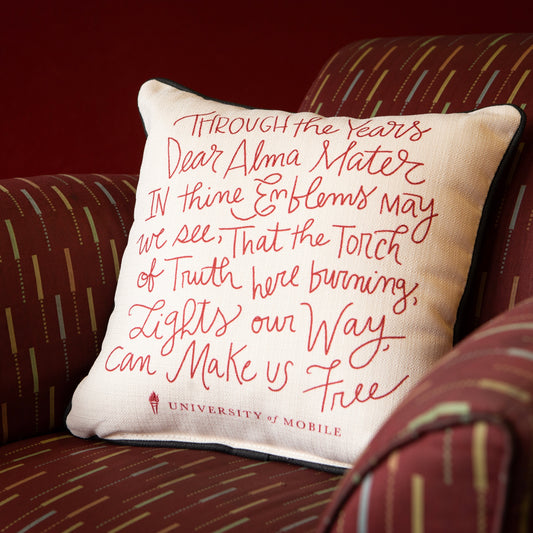 THROUGH the Years
Dear Alma Mater
IN thine Emblems MAY
we see, That the Torch
of Truth here burning,
Lights our Way,
can Make us Free
UNIVERSITY of MOBILE